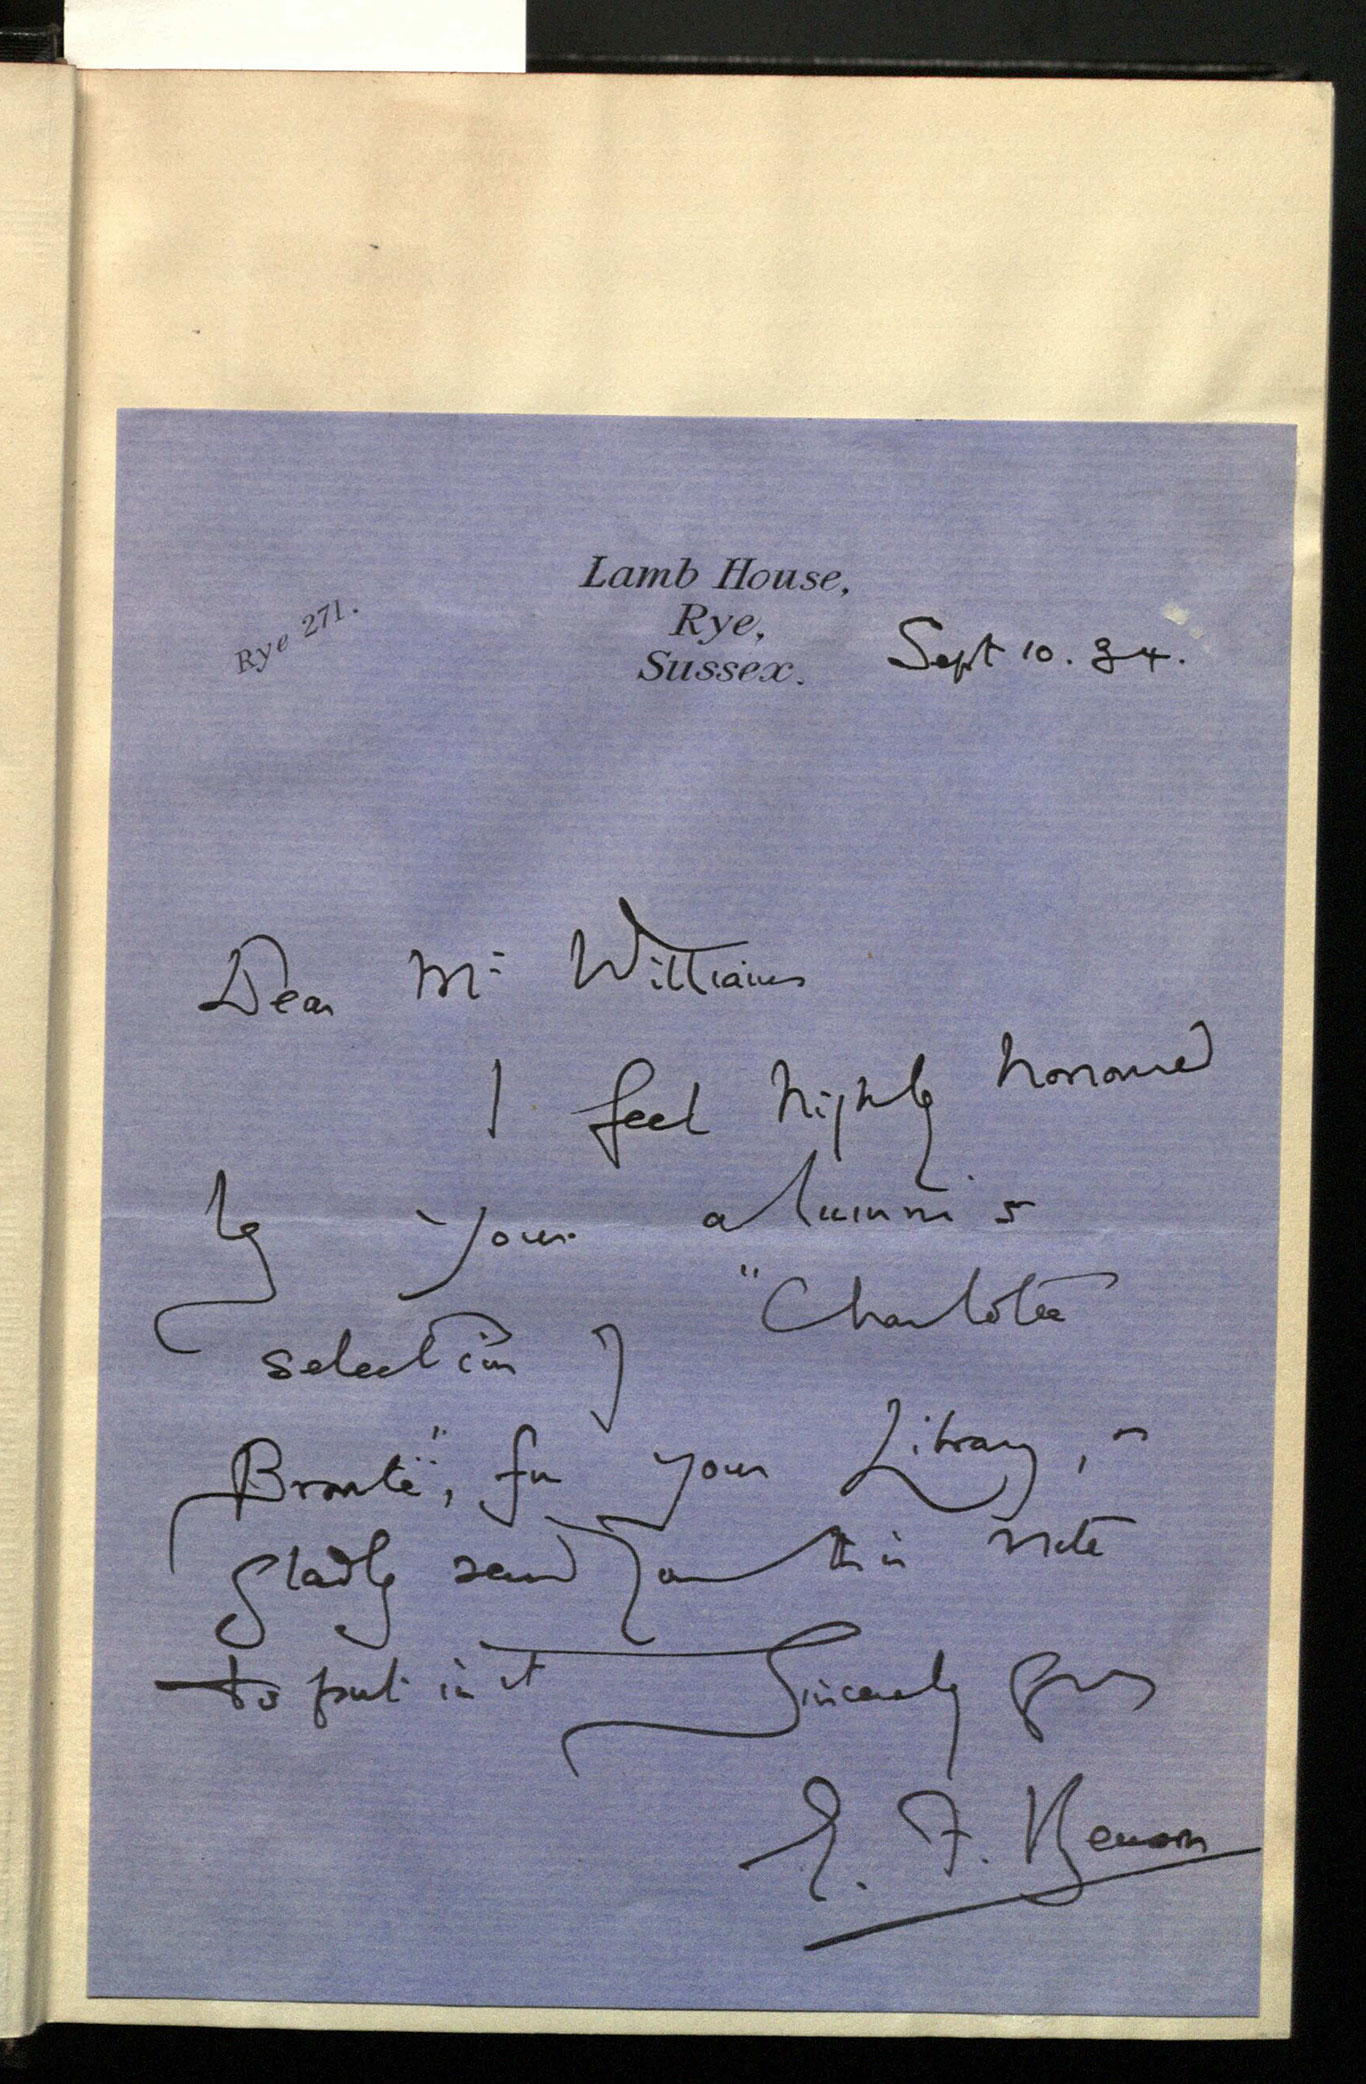 Lamb House,
Rye,
Sussex.
Rye 271.
Sept 10. 34.
Dear Mr Williams
I feel highly honoured
by your alumni's
selection of "Charlotte
Brontë", for your Library, &
gladly send you this note
to put in it
Sincerely yours
E. F. Benson